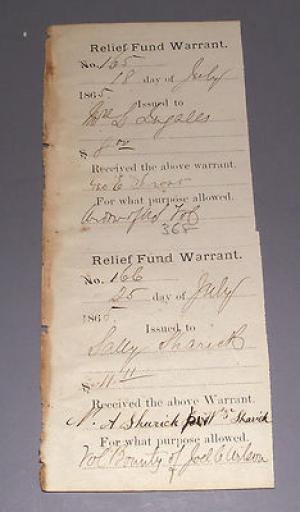 Relief Fund Warrant.
No. 165
18 day of July
1865.
Issued to
Mrs L Ingalls
$ 8.00
Received the above warrant.
Geo E
For what purpose allowed.
of Vol
368
Relief Fund Warrant.
No. 166
25 day of July
186
Issued to
Sally Sharick
$ 11 11
Received the above Warrant.
N. A Sharick Sharick
For what purpose allowed.
Vol Bounty of Joel C Wilson